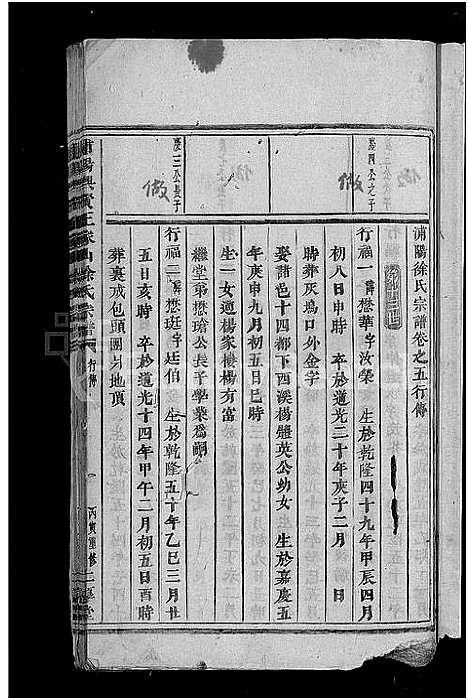 浦陽徐氏宗譜卷之五行傳
基四公之子
行福一 諱懋華字汝榮 生於乾隆四十九年甲辰四月
初八日申時 卒於道光二十年庚子二月 日
時葬灰塢口外金字
娶諸邑十四都下西溪楊體英公幼女 生於嘉慶五
年庚申九月初五日巳時
生一女適楊家樓楊方富
繼堂弟懋瑲公長子學業爲嗣
基三公長子
行福二 諱懋珽字廷伯 生於乾隆五十年乙巳三月廿
五日亥時 卒於道光十四年甲午二月初五日酉時
葬裏戎包頭園外地頂
浦陽興賢王家山徐氏宗譜
行傳
丙寅重修